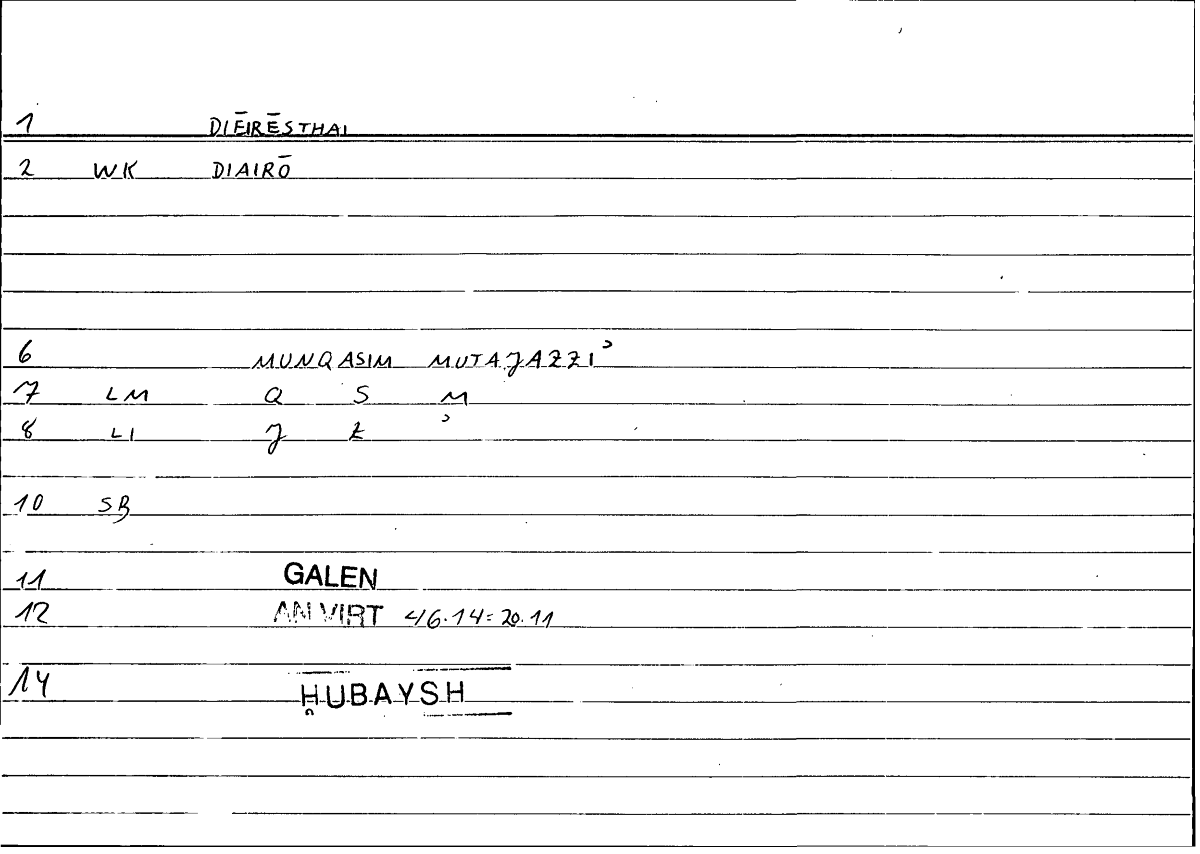 1 DIĒIRĒSTHAI
2 WK DIAIRŌ
6 MUNQASIM MUTAJAZZIʾ
7 LM Q S M
8 LI J Z ʾ
10 SB
11 GALEN
12 AN VIRT 46.14 = 20.11
14 ḤUBAYSH